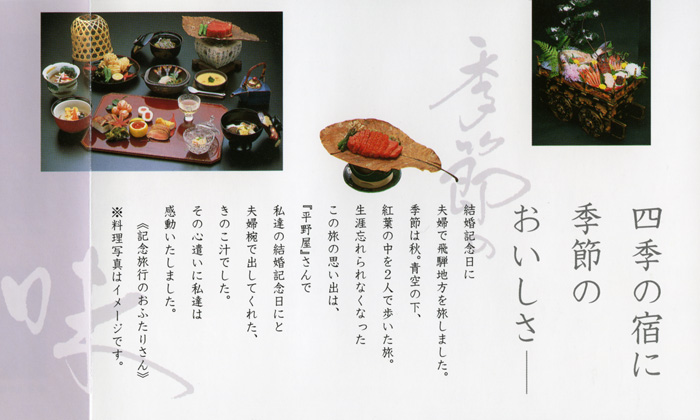 四季の宿に
季節の
おいしさ――
季節の
味
結婚記念日に
夫婦で飛騨地方を旅しました。
季節は秋。青空の下、
紅葉の中を２人で歩いた旅。
生涯忘れられなくなった
この旅の思い出は、
『平野屋』さんで
私達の結婚記念日にと
夫婦椀で出してくれた、
きのこ汁でした。
その心遣いに私達は
感動いたしました。
《記念旅行のおふたりさん》
※料理写真はイメージです。